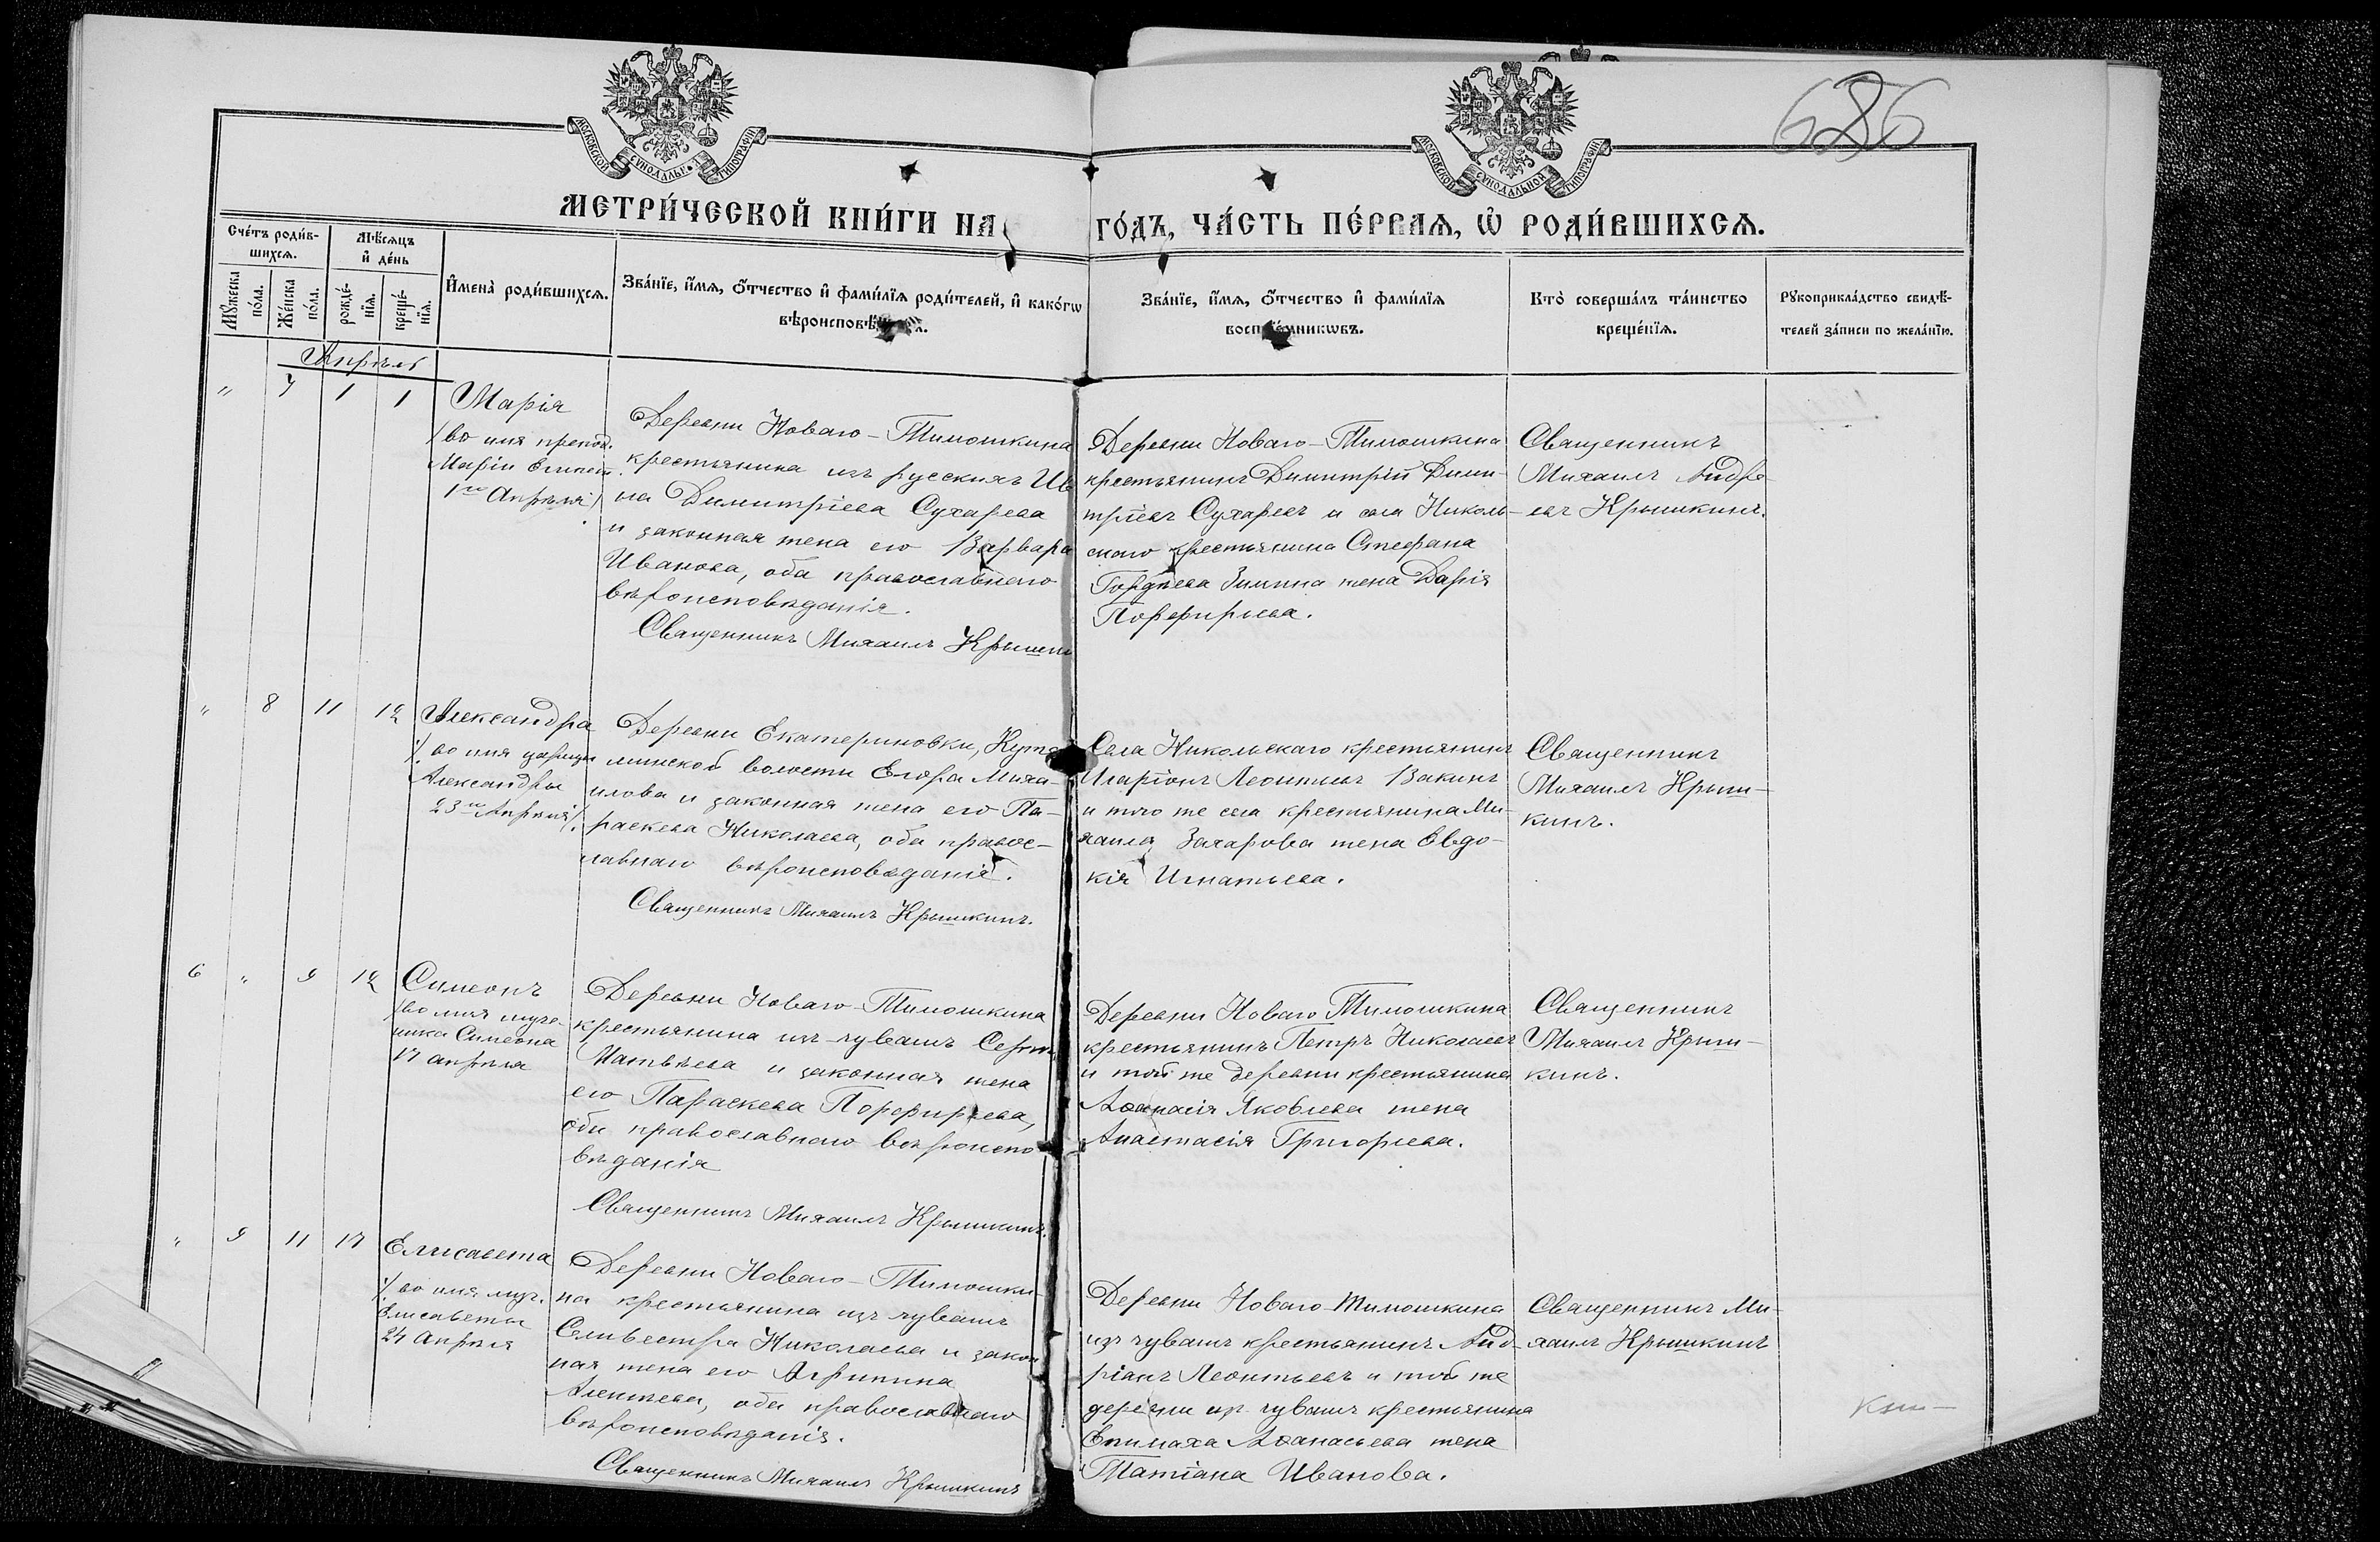 686
МОСКОВСКОЙ СУНОДАЛЬНОЙ ТИПОГРАФІИ
МОСКОВСКОЙ СУНОДАЛЬНОЙ ТИПОГРАФІИ
МЕТРИ́ЧЕСКОЙ КНИ́ГИ НА ГО́ДЪ, ЧА́СТЬ ПЕ́РВАѦ, Ѡ РОДИ́ВШИХСѦ.
Сче́тъ роди́в-
шихсѧ.
Мꙋ́жеска
по́ла.
Же́нска
по́ла.
Мѣ́сѧцъ
и҆ де́нь
рожде́-
нїѧ.
креще́-
нїѧ.
И҆мена̀ роди́вшихсѧ.
Зва́нїе, и҆́мѧ, ѻ҆́тчество и҆ фами́лїѧ роди́телей, и҆ како́гѡ
вѣроисповѣ
Зва́нїе, и҆́мѧ, ѻ҆́тчество и҆ фами́лїѧ
воспрїе́мникѡвъ.
Кто̀ соверша́лъ та́инство
креще́нїѧ.
Рꙋкоприкла́дство свидѣ́-
телей за́писи по жела́нїю.
Апрѣль
" 7 1 1
Марія
(во имя препод.
Маріи Египет.
1го Апрѣля)
Деревни Новаго-Тимошкина
крестьянина изъ русскихъ Ив
на Димитріева Сухарева
и законная жена его Варвара
Иванова, оба православнаго
вѣроисповѣданія.
Священникъ Михаилъ Крышки
Деревни Новаго-Тимошкина
крестьянинъ Димитрій Дими-
тріевъ Сухаревъ и села Николь-
скаго крестьянина Стефана
Гордѣева Зимина жена Дарія
Порфирьева.
Священникъ
Михаилъ Андре-
евъ Крышкинъ.
" 8 11 12
Александра
(во имя царицы
Александры
23го Апрѣля).
Деревни Екатериновки, Кузо
минской волости Егора Миха-
илова и законная жена его Па-
раскева Николаева, оба правос-
лавнаго вѣроисповѣданія.
Священникъ Михаилъ Крышкинъ.
Села Никольскаго крестьянинъ
Иларіонъ Леонтьевъ Вакинъ
и того же села крестьянина Ми-
хаила Захарова жена Евдо-
кія Игнатьева.
Священникъ
Михаилъ Крыш-
кинъ.
6 " 9 12
Симеонъ
(во имя муче-
ника Симеона
17 апрѣля
Деревни Новаго-Тимошкина
крестьянина изъ чувашъ Серг
Матвѣева и законная жена
его Параскева Порфирьева,
оба православнаго вѣроиспо-
вѣданія
Священникъ Михаилъ Крышкинъ.
Деревни Новаго Тимошкина
крестьянинъ Петръ Николаевъ
и той же деревни крестьянина
Аѳанасія Яковлева жена
Анастасія Григорьева.
Священникъ
Михаилъ Крыш-
кинъ.
" 9 11 17
Елисавета
(во имя муч.
Елисаветы
24 Апрѣля
Деревни Новаго-Тимошки-
на крестьянина изъ чувашъ
Сильвестра Николаева и закон
ная жена его Агрипина
Алексѣева, оба православнаго
вѣроисповѣданія.
Священникъ Михаилъ Крышкинъ
Деревни Новаго-Тимошкина
изъ чувашъ крестьянинъ Анд-
ріанъ Леонтьевъ и той же
деревни из чувашъ крестьянина
Епимаха Аѳанасьева жена
Татіана Иванова.
Священникъ Ми-
хаилъ Крышкинъ